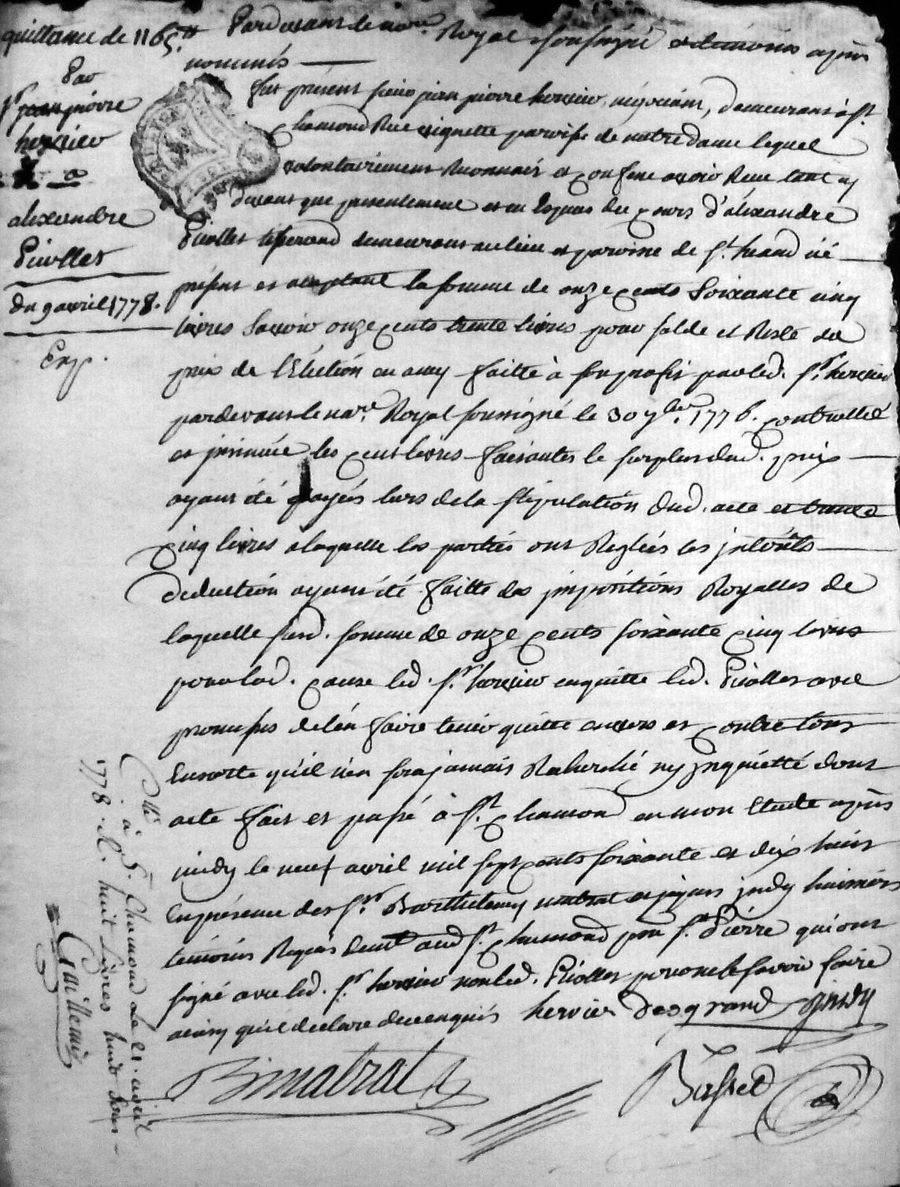 quittance de 1165.tt
Par
sr jean pierre
hervier
a
alixandre
Piolles
du 9 avril 1778.
Exp.
Pardevant le nore. Royal soussigné et temoins apres
nommés
fut présent sieur jean pierre hervier, négociant, demeurant à st.
Chamond Rue paroisse de notre dame lequel
volontairement Reconnait et confesse avoir Reçu tant cy
devant que presentement et en Especes du cours d'alixandre
Piolles demeurant au lieu et paroisse de st. heand icé
présent et acceptant la somme de onze cents Soixante cinq
livres Savoir onze cents trente livres pour solde et Reste du
prix de l'Election en amy faitte à son profit par led. sr. hervier
pardevant le nore. Royal soussigné le 30 7bre. 1776. controllée
et insinuée les cent livres faisantes le surplus dud. prix
ayant été payés lors de la stipulation dud. acte et trente
cinq livres a laquelle les parties ont Reglées les interêts
deduction ayant été faitte des impositions Royalles de
laquelle susd. somme de onze cents soixante cinq livres
pour lad. cause led. sr. hervier en quitte led. Piolles avec
promesses de l'en faire tenir quitte envers et contre tous
Ensorte qu'il n'en sera jamais Recherché ny inquietté dont
acte fait et passé à st. Chamond en mon Etude apres
midy le neuf avril mil sept cents soixante et dix huit
En présence des srs. Barthelemy matrat et jaques jurdy huissiers
temoins Requis demt. aud. st. Chamond psse. st. Pierre qui ont
signé avec led. sr. hervier non led. Piolles pour ne le savoir faire
ainsy qu'il declare de ce enquis hervier desgrand jurdy
Bmatrat
Basset
Clle.
à St. Chamond Le 21. avril
1778. R. huit Livres huit sous